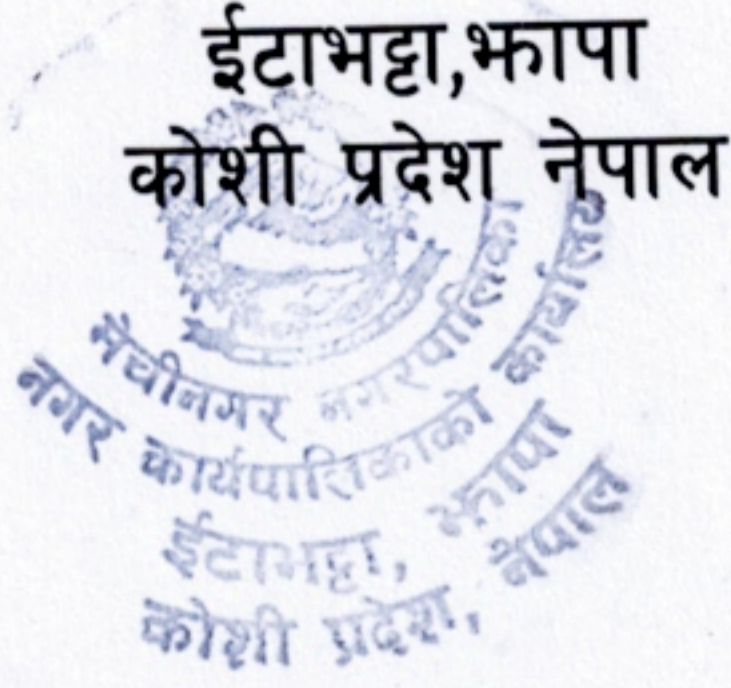 ईटाभट्टा,झापा
कोशी प्रदेश नेपाल
मेचीनगर नगरपालिका
नगर कार्यपालिकाको कार्यालय
ईटाभट्टा, झापा
कोशी प्रदेश, नेपाल